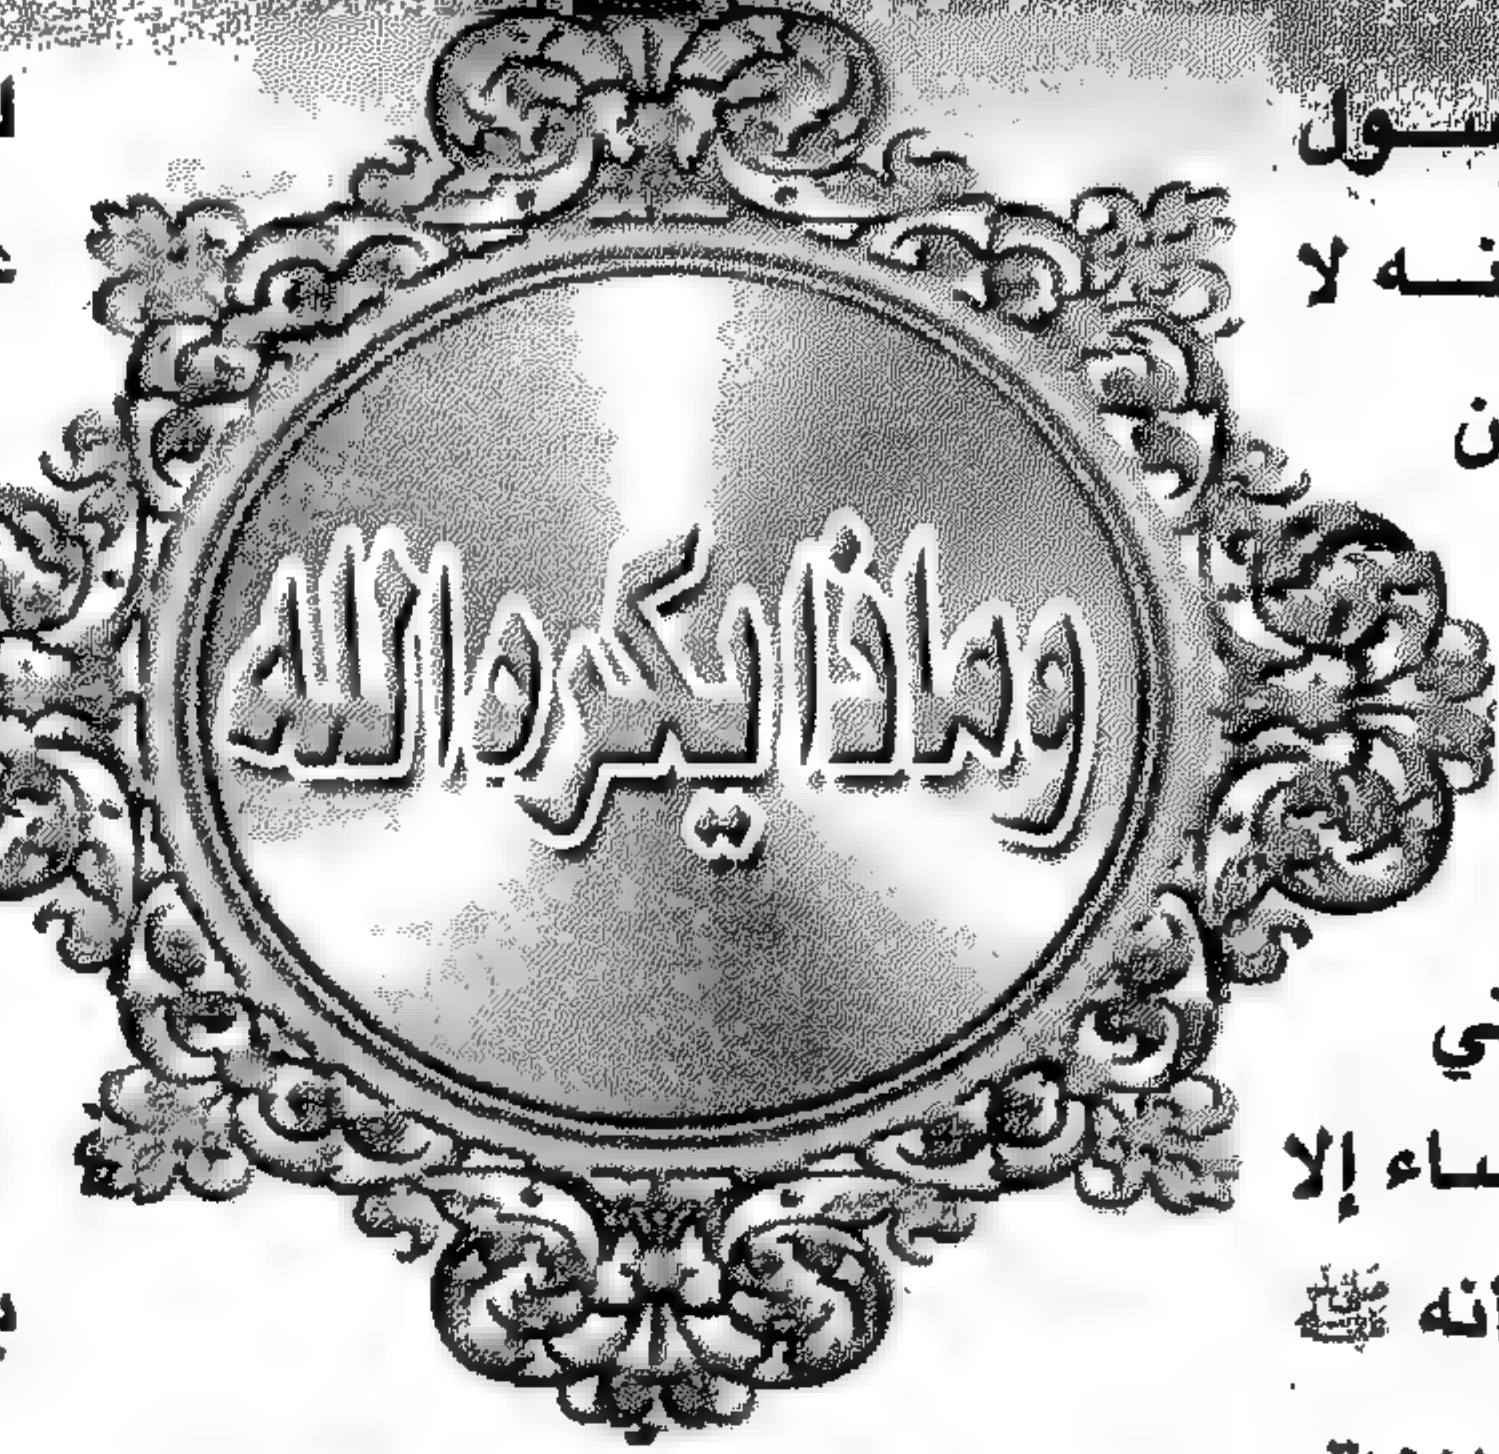 وماذا يكره الله
ـسول
ـنـه لا
ن
ـي
ـساء إلا
أنه ﷺ